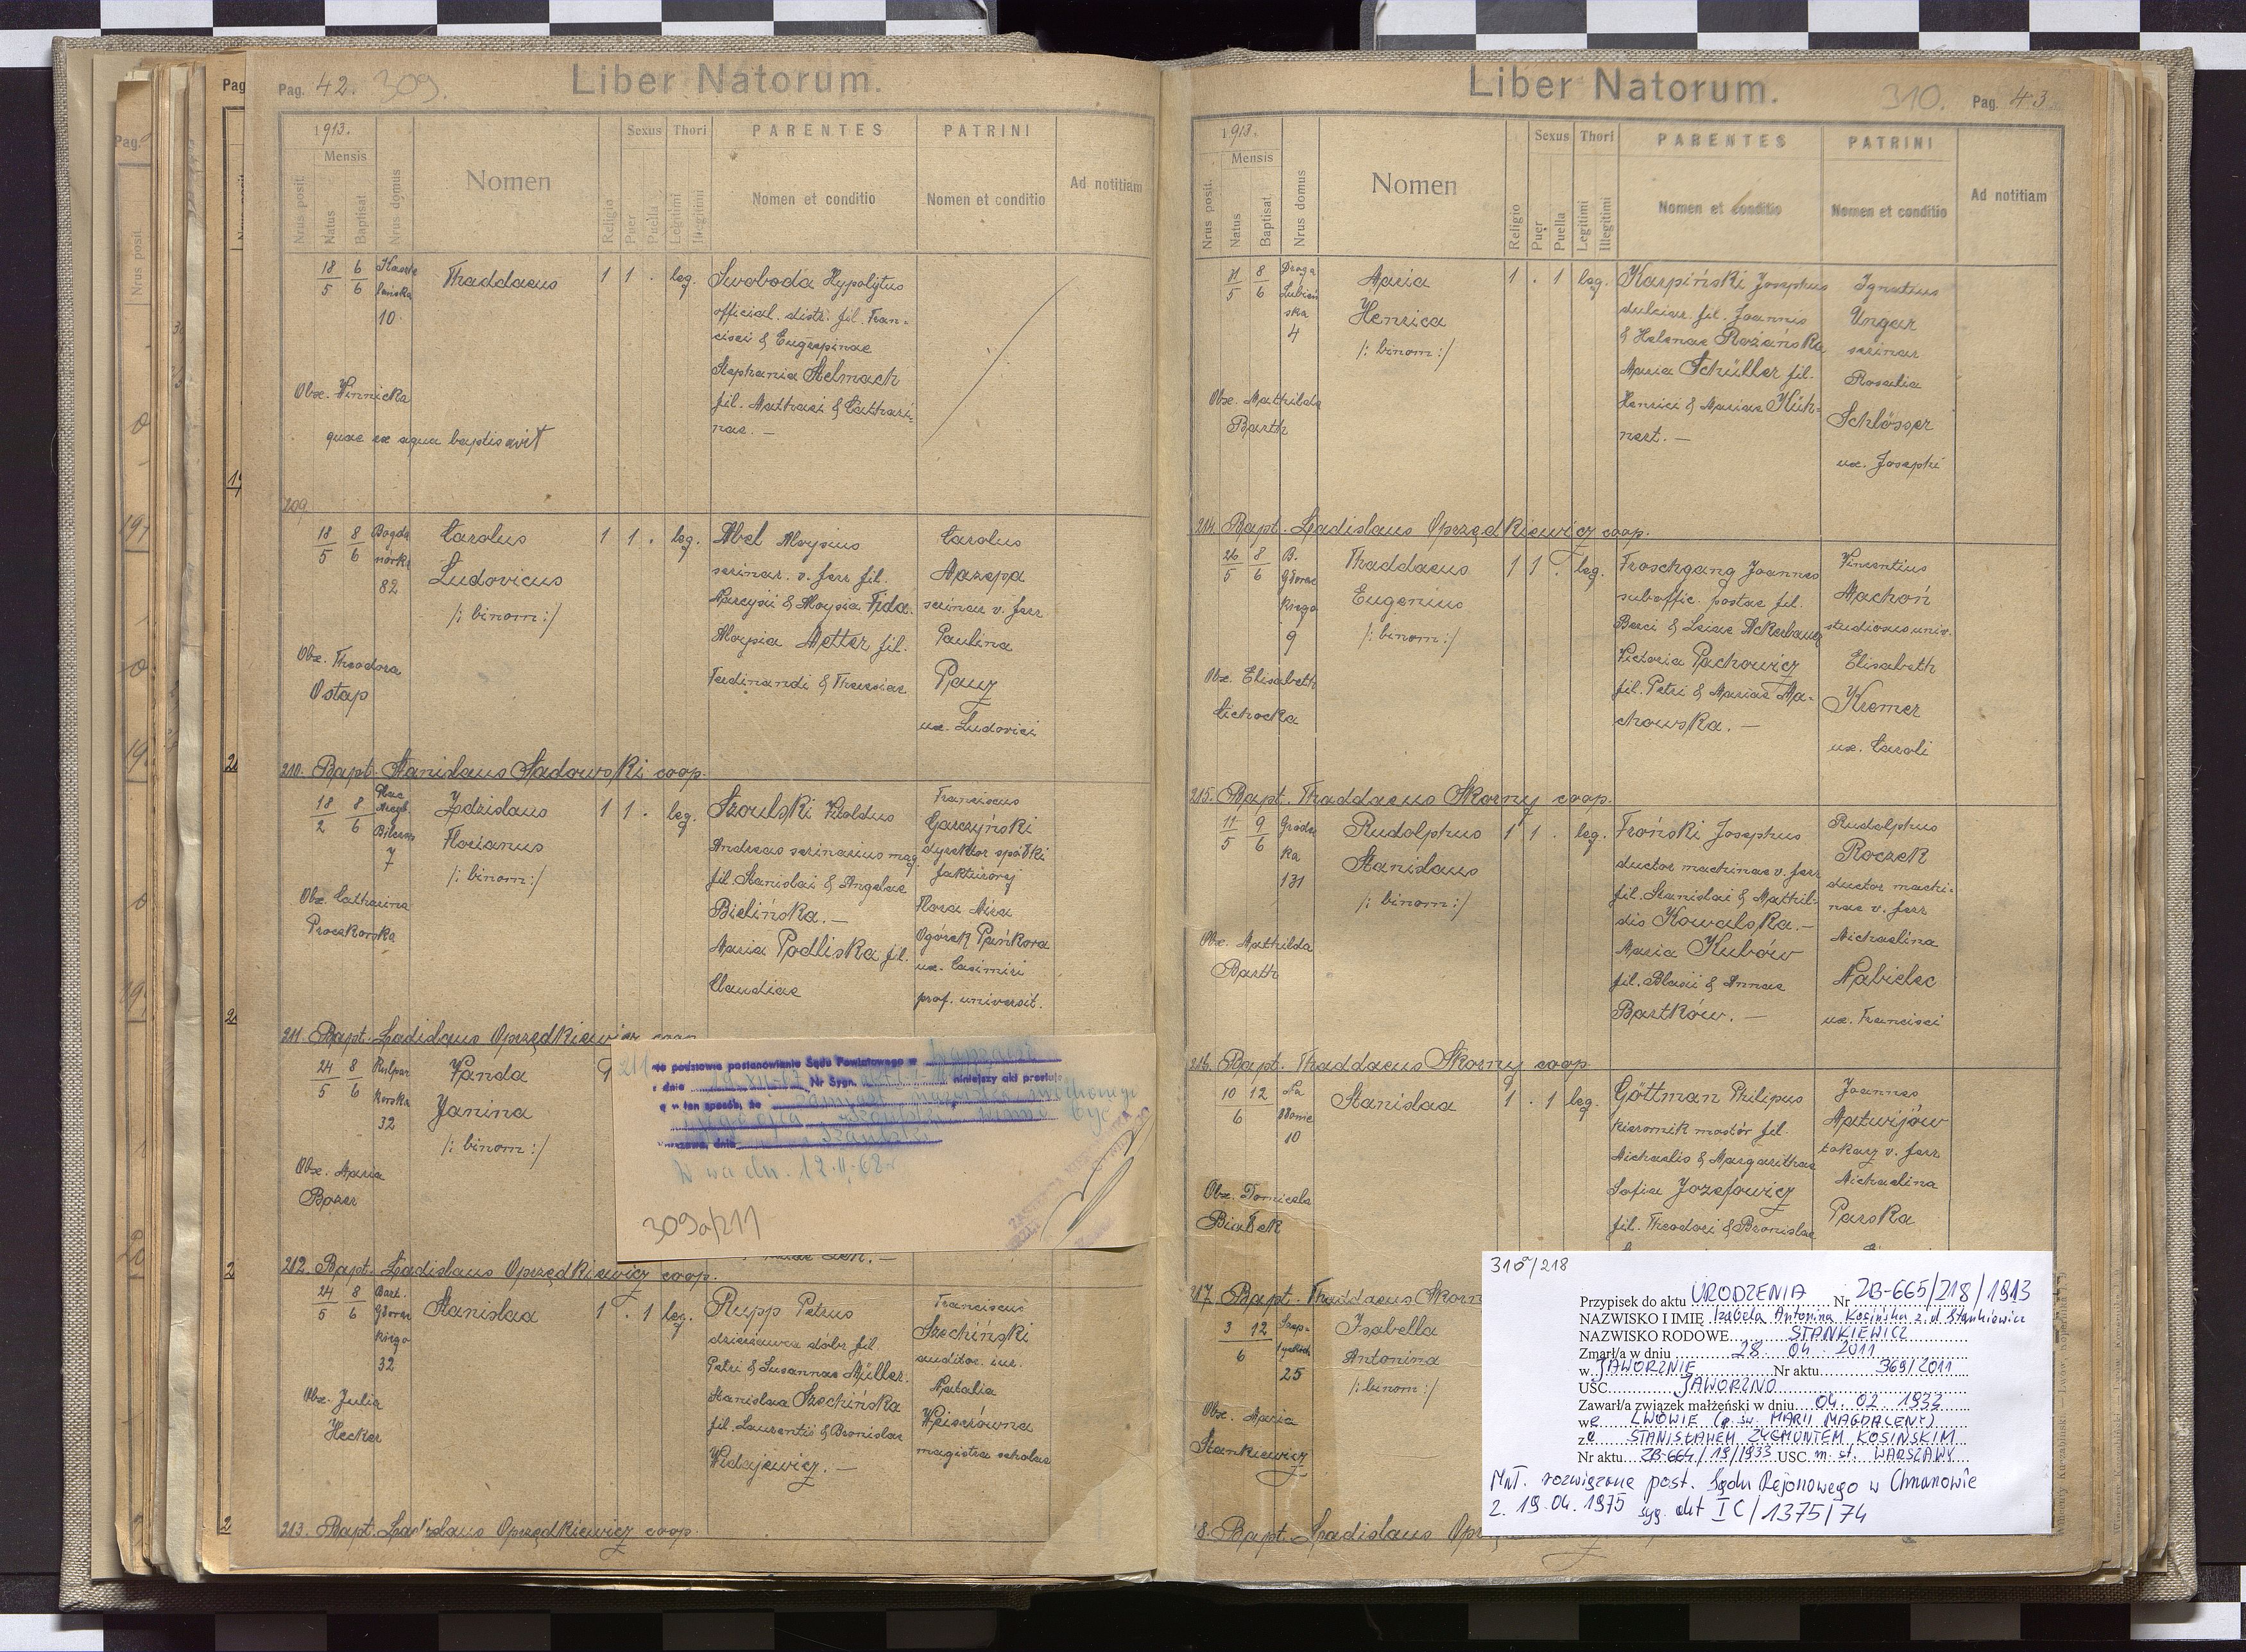 Pag. 42. 309.
Liber Natorum.
1913.
Mensis
Nrus posit.
Natus
Baptisat.
Nrus domus
Nomen
Religio
Sexus
Puer
Puella
Thori
Legitimi
Illegitimi
PARENTES
Nomen et conditio
PATRINI
Nomen et conditio
Ad notitiam
18/5 6/6
10
Thaddaeus
1 1 . leg.
Swoboda Hypolytus
official. distr. fil. Fran-
cisci & Eugrapinae
Stephania Stelmach
fil. Mathaei & Cathari-
nae. —
Obx. Winnicka
quae ex aqua baptisavit
209.
18/5 8/6
82
Carolus
Ludovicus
/: binom :/
1 1 . leg.
Abel Aloysius
scrinar. v. ferr fil.
Narcysii & Aloysia Fida.
Aloysia Metter fil.
Ferdinandi & Theresiae
Carolus
Mazepa
scrinar v. ferr
Paulina
Pauz
ux. Ludovici
Obx. Theodora
Ostap
210. Bapt. Stanislaus Sadowski coop.
18/2 8/6
Plac
Arcyb.
7
Zdzislaus
Florianus
/: binom :/
1 1 . leg.
Szoulski Vitoldus
Andreas scrinarius mag.
fil. Stanislai & Angelae
Bielińska. —
Maria Podliska fil.
Claudiae
Franciscus
Garczyński
dyrektor spółki
Flora Aira
Ogórek Pańkora
ux. Casimiri
prof. universit.
Obx. Catharina
Proczkorska
211. Bapt. Ladislaus Oprzędkiewicz coop.
24/5 8/6
Kulpar
kowska
32
Vanda
Janina
/: binom :/
Obx. Maria
Bozer
211
na podstawie postanowienia Sądu Powiatowego w
z dnia Nr Sygn. niniejszy akt prostuje
się w ten sposób, że zamiast
winno być
Warszawa, dnia
W-wa dn. 12.II.68 r.
309a/211
212. Bapt. Ladislaus Oprzędkiewicz coop.
24/5 8/6
Bart.
Głowac
kiego
32
Stanislaa
1 . 1 leg.
Rupp Petrus
dzierżawca dóbr fil.
Petri & Susannae Müller.
Stanislaa Szechińska
fil. Laurentii & Bronislae
Widajewicz. —
Franciscus
Szechiński
auditor. iur.
Natalia
Weisrówna
magistra scholae
Obx. Julia
Hecker
213. Bapt. Ladislaus Oprzędkiewicz coop.
Liber Natorum.
310. Pag. 43
1913.
Mensis
Nrus posit.
Natus
Baptisat.
Nrus domus
Nomen
Religio
Sexus
Puer
Puella
Thori
Legitimi
Illegitimi
PARENTES
Nomen et conditio
PATRINI
Nomen et conditio
Ad notitiam
31/5 8/6
Droga
Lubień
ska
4
Maria
Henrica
/: binom :/
1 . 1 leg.
Karpiński Josephus
dulciar. fil. Joannis
& Helenae Rożańska
Maria Schüller fil.
Henrici & Mariae Küh-
nert. —
Ignatius
Ungar
scrinar
Rosalia
Schlösser
ux. Josephi
Obx. Mathilda
Barth
214. Bapt. Ladislaus Oprzędkiewicz coop.
26/5 8/6
B.
Głowac
kiego
9
Thaddaeus
Eugenius
/: binom :/
1 1 . leg.
Froschgang Joannes
suboffic. postae fil.
Berci & Leiae Ackerbauz
Victoria Pachowicz
fil. Petri & Mariae Ma-
chowska. —
Vincentius
Machoń
studiosus univ.
Elisabeth
Kremer
ux. Caroli
Obx. Elisabeth
Cichocka
215. Bapt. Thaddaeus Skorny coop.
11/5 9/6
Gróde
ka
131
Rudolphus
Stanislaus
/: binom :/
1 1 . leg.
Froński Josephus
ductor machinae v. ferr
fil. Stanislai & Mathil-
dis Kowalska. —
Maria Kubów
fil. Blasii & Annae
Bartków. —
Rudolphus
Roczek
ductor machi-
nae v. ferr
Michaelina
Nabielec
ux. Francisci
Obx. Mathilda
Barth
216. Bapt. Thaddaeus Skorny coop.
10 12/6
Na
Błonie
10
Stanislaa
1 . 1 leg.
Göttman Philipus
kierownik mostów fil.
Michaelis & Margarithae
Sofia Jozefowicz
fil. Theodori & Bronislae
Joannes
Matwijów
tokarz v. ferr
Michaelina
Parska
Obx. Domicela
Białek
217. Bapt. Thaddaeus Skorn
3 12/6
25
Isabella
Antonina
/: binom :/
Obx. Maria
Stankiewicz
18. Bapt. Ladislaus Opr
310a/218
Przypisek do aktu URODZENIA Nr ZB-665/218/1913
NAZWISKO I IMIĘ Izabela Antonina Kosińska z d. Stankiewicz
NAZWISKO RODOWE STANKIEWICZ
Zmarł/a w dniu 28. 04. 2011
w JAWORZNIE Nr aktu 369/2011
USC JAWORZNO
Zawarł/a związek małżeński w dniu 04. 02. 1933
we LWOWIE (p. św. MARII MAGDALENY)
ze STANISŁAWEM ZYGMUNTEM KOSIŃSKIM
Nr aktu ZB-664/19/1933 USC m. st. WARSZAWY
Mał. rozwiązane post. Sądu Rejonowego w Chrzanowie
z. 19.04.1975 syg. akt I C/1375/74